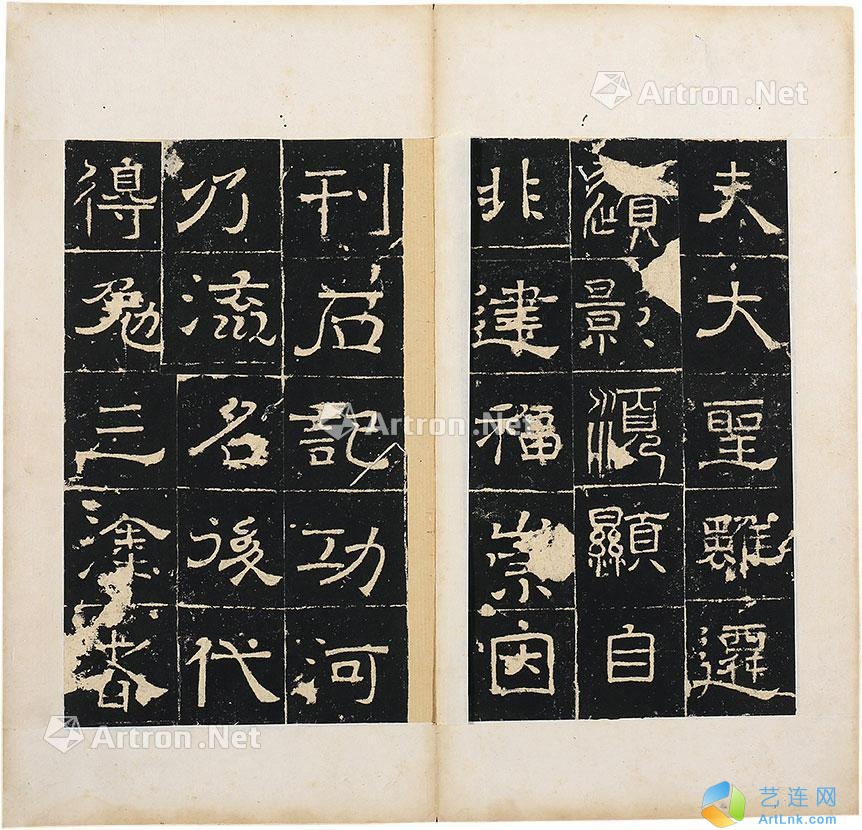 夫大聖雖遷
影須顯自
非建福崇因
刊石記功河
乃流名後代
得勉三塗者
Artron.Net
Artron.Net
Artron.Net
艺连网
ArtLnk.com